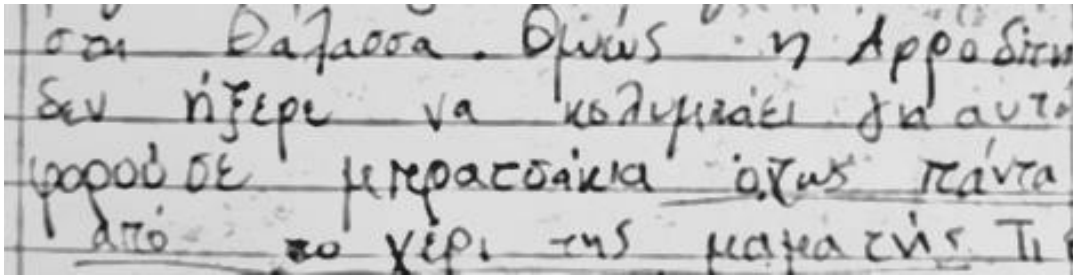 στη θάλασσα. Όμώς η Αφροδίτη
δεν ήξερε να κολυμπάει για αυτό
φορούσε μπρατσάκια όπως πάντα
από το χέρι της μαμά τής Τι